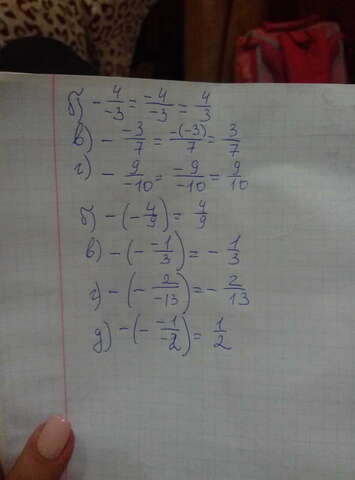 б) - 4/-3 = -4/-3 = 4/3
в) - -3/7 = -(-3)/7 = 3/7
г) - 9/-10 = -9/-10 = 9/10
б) -(-4/9) = 4/9
в) -(- -1/3) = - 1/3
г) -(- 2/-13) = - 2/13
д) -(- -1/-2) = 1/2